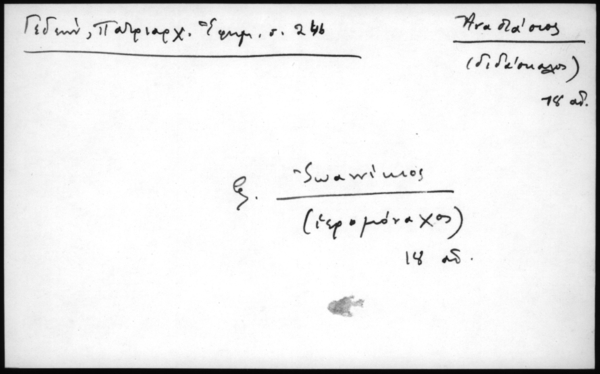 Γεδεών, Πατριαρχ. Ἐφημ. σ. 246
Ἀναστάσιος
(διδάσκαλος)
18 αἰ.
Ἰωαννίκιος
(ἱερομόναχος)
18 αἰ.